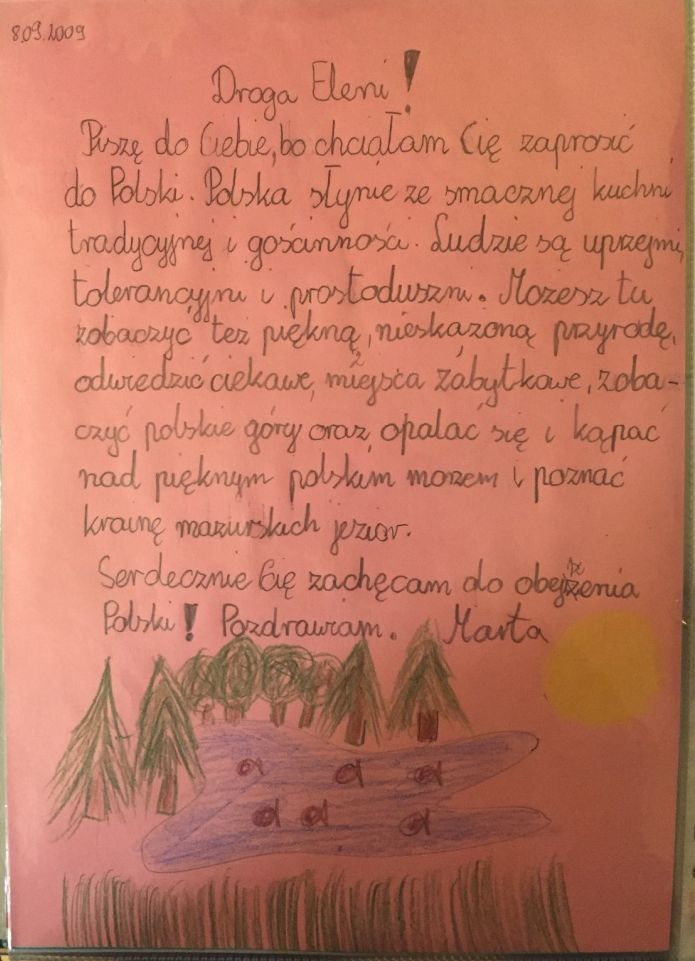 8.09.2009
Droga Eleni!
Piszę do Ciebie, bo chciałam Cię zaprosić
do Polski. Polska słynie ze smacznej kuchni
tradycyjnej i gościnności. Ludzie są uprzejmi,
tolerancyjni i prostoduszni. Możesz tu
zobaczyć też piękną, nieskażoną przyrodę,
odwiedzić ciekawe, miejsca zabytkowe, zoba-
czyć polskie góry oraz opalać się i kąpać
nad pięknym polskim morzem i poznać
krainę mazurskich jezior.
Serdecznie Cię zachęcam do obejrzenia
Polski! Pozdrawiam. Marta